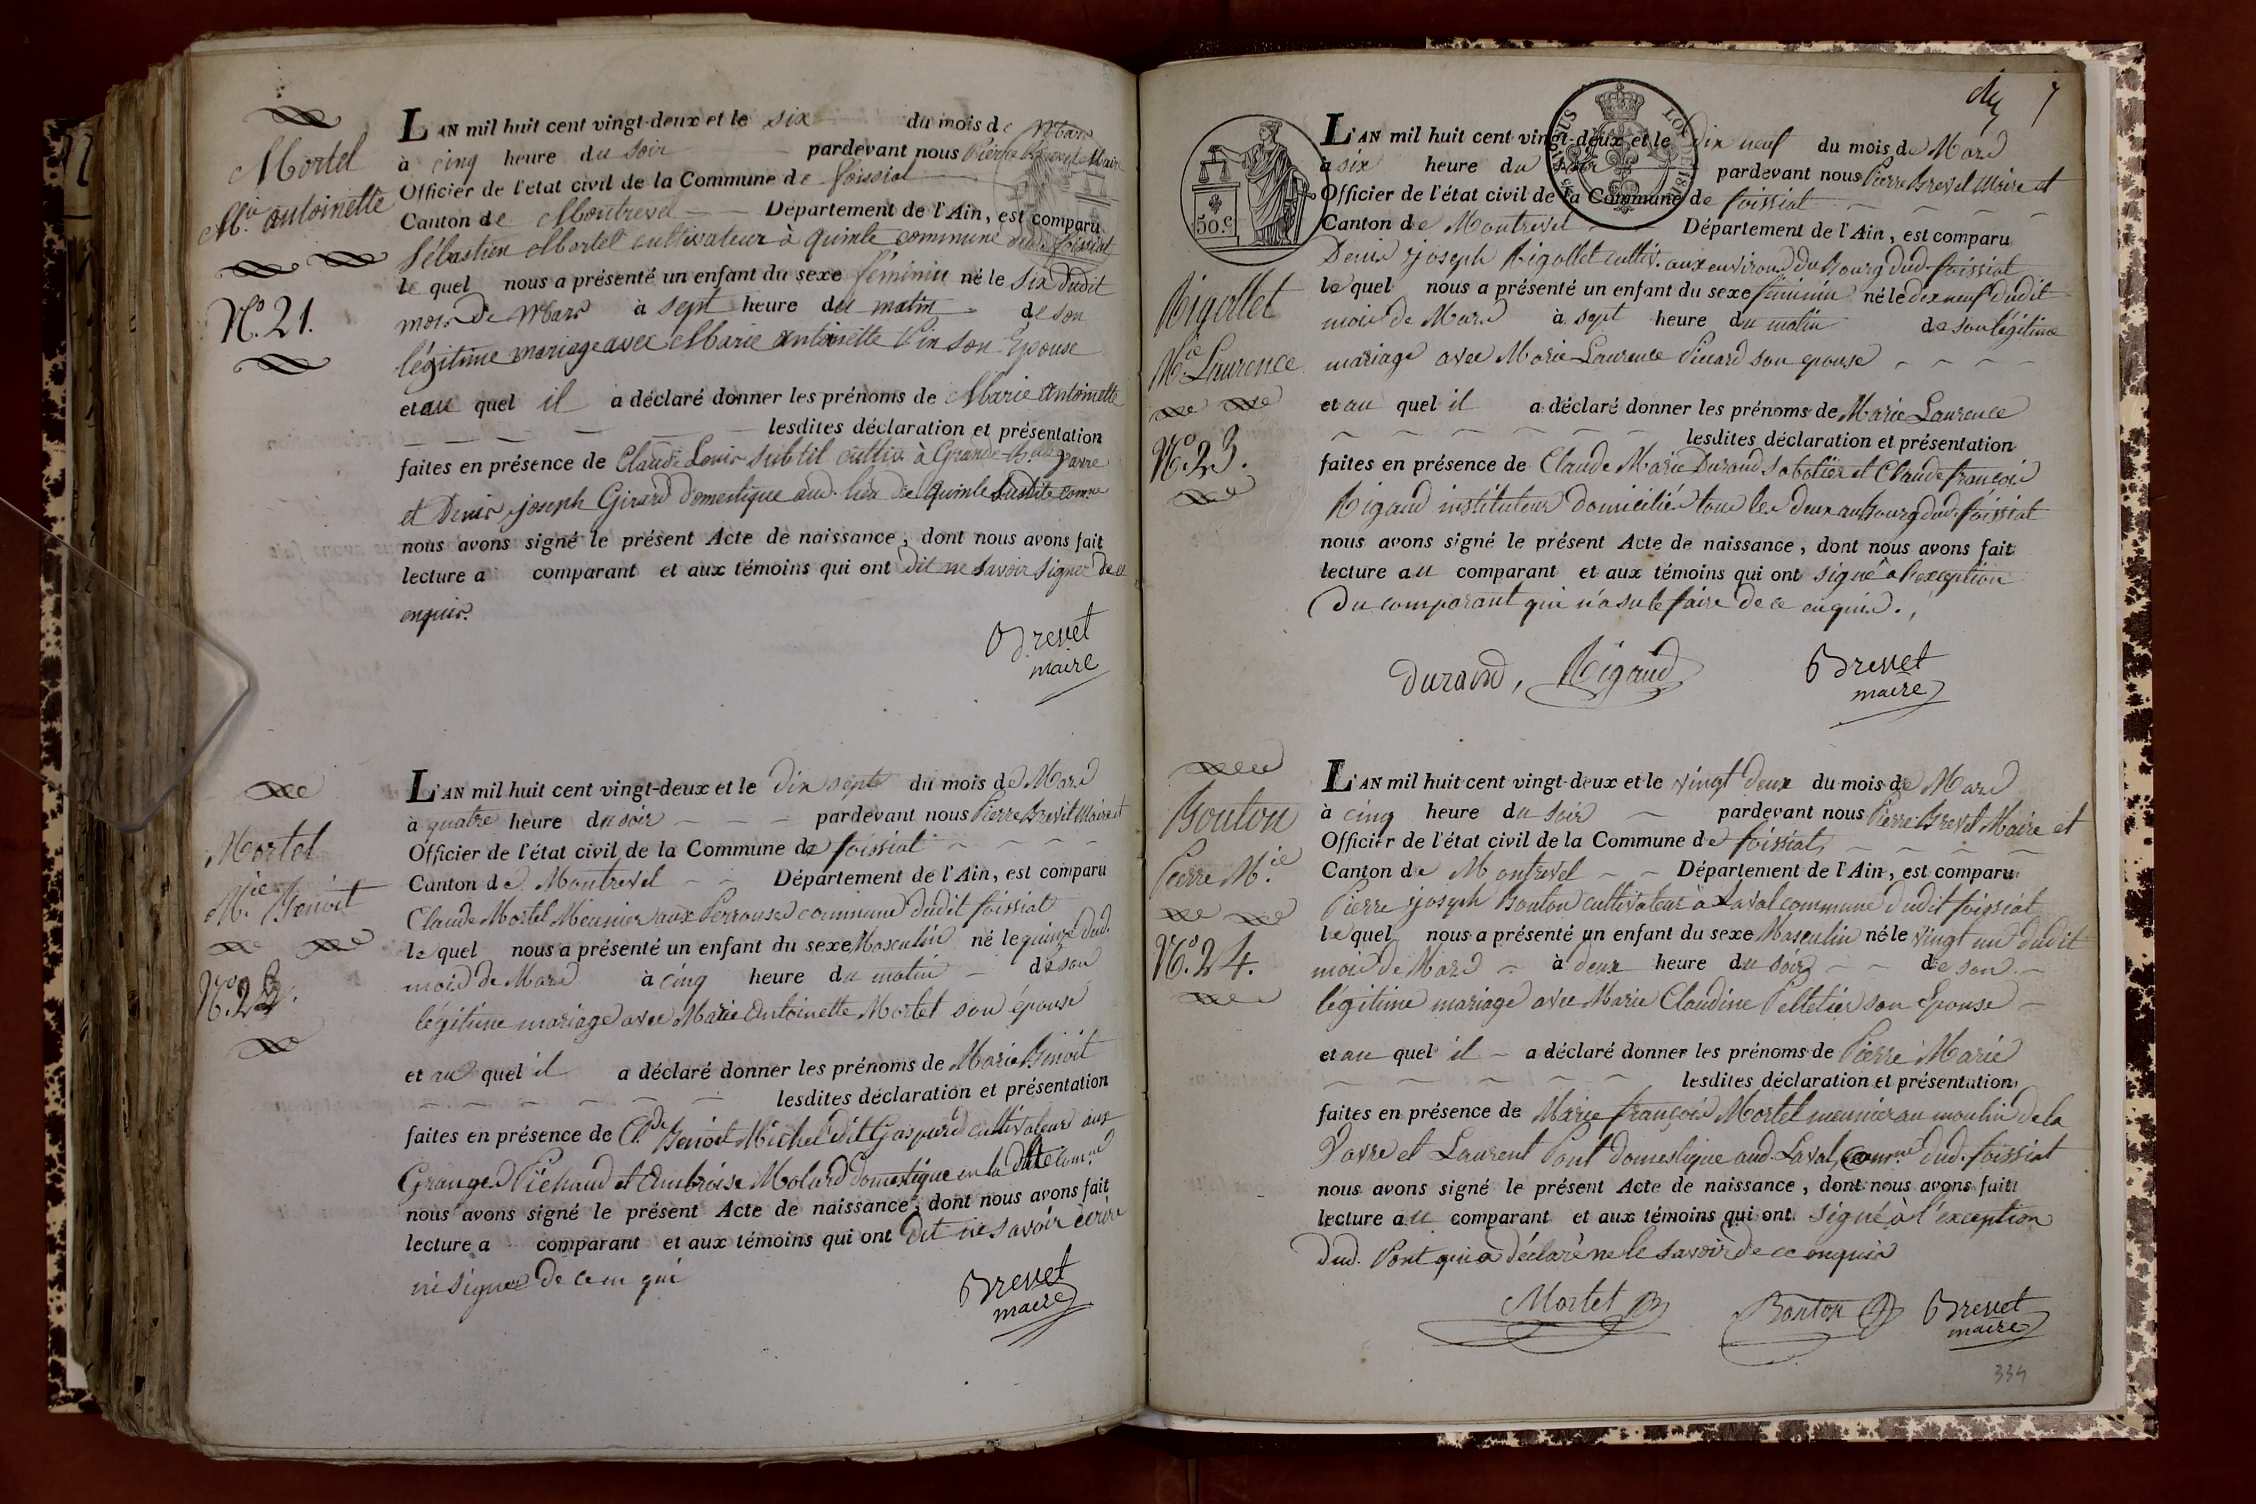 Mortel
M.ie antoinette
N.o 21.
L'AN mil huit cent vingt-deux et le six du mois de Mars
à cinq heure du soir pardevant nous Pierre Brevet Maire
Officier de l'etat civil de la Commune de foissiat
Canton de Montrevel Département de l'Ain, est comparu
Sébastien Mortel cultivateur à Quinte commune dud. foissiat
le quel nous a présenté un enfant du sexe féminin né le six dudit
mois de Mars à sept heure du matin de son
légitime mariage avec Marie antoinette Pin son Epouse
et au quel il a déclaré donner les prénoms de Marie Antoinette
lesdites déclaration et présentation
faites en présence de Claude Louis Subtil cultiv. à Grande
et Denis joseph Girard domestique aud. lieu de Quinte susdite comne
nous avons signé le présent Acte de naissance, dont nous avons fait
lecture a comparant et aux témoins qui ont dit ne savoir signer de ce
enquis.
Brevet
maire
Mortel
M.ie Benoit
N.o 22.
L'AN mil huit cent vingt-deux et le dix sept du mois de Mars
à quatre heure du soir pardevant nous Pierre Brevet Maire et
Officier de l'état civil de la Commune de foissiat
Canton de Montrevel Département de l'Ain, est comparu
Claude Mortel Meunier aux Perrouses commune dudit foissiat
le quel nous a présenté un enfant du sexe Masculin né le quinze dud.
mois de Mars à cinq heure du matin de son
légitime mariage avec Marie Antoinette Mortel son épouse
et au quel il a déclaré donner les prénoms de Marie Benoit
lesdites déclaration et présentation
faites en présence de Cl.de Benoit Michel dit Gaspard cultivateur aux
Granges Pichaud et Ambroise Molard domestique en la dite Com.ne
nous avons signé le présent Acte de naissance, dont nous avons fait
lecture a comparant et aux témoins qui ont dit ne savoir écrire
ni signer de ce en qui
Brevet
maire
7
50.c
Rigollet
M.ie Laurence
N.o 23.
L'AN mil huit cent vingt-deux et le dix neuf du mois de Mars
à six heure du soir pardevant nous Pierre Brevet Maire et
Officier de l'état civil de la Commune de foissiat
Canton de Montrevel Département de l'Ain, est comparu
Denis joseph Rigollet cultiv. aux environs du Bourg dud. foissiat
le quel nous a présenté un enfant du sexe féminin né le dix neuf dudit
mois de Mars à sept heure du matin de son légitime
mariage avec Marie Laurence Piuard son epouse
et au quel il a déclaré donner les prénoms de Marie Laurence
lesdites déclaration et présentation
faites en présence de Claude Marie Durand Sabotier et Claude françois
Rigaud instituteur domiciliés tous les deux au Bourg dud. foissiat
nous avons signé le présent Acte de naissance, dont nous avons fait
lecture au comparant et aux témoins qui ont signé à l'exception
du comparant qui n'a su le faire de ce enquis.
Durand, Rigaud
Brevet
maire
Bouton
Pierre M.ie
N.o 24.
L'AN mil huit cent vingt-deux et le vingt deux du mois de Mars
à cinq heure du soir pardevant nous Pierre Brevet Maire et
Officier de l'état civil de la Commune de foissiat
Canton de Montrevel Département de l'Ain, est comparu
Pierre joseph Bouton cultivateur à Laval commune dudit foissiat
le quel nous a présenté un enfant du sexe Masculin né le vingt un dudit
mois de Mars à deux heure du soir de son
légitime mariage avec Marie Claudine Pelletier son Epouse
et au quel il a déclaré donner les prénoms de Pierre Marie
lesdites déclaration et présentation
faites en présence de Marie françois Mortel meunier au moulin de la
Vavre et Laurent Pont domestique aud. Laval, Com.ne dud. foissiat
nous avons signé le présent Acte de naissance, dont nous avons fait
lecture au comparant et aux témoins qui ont signé à l'exception
dud. Pont qui a déclaré ne le savoir de ce enquis
Mortet Bouton Brevet
maire
334